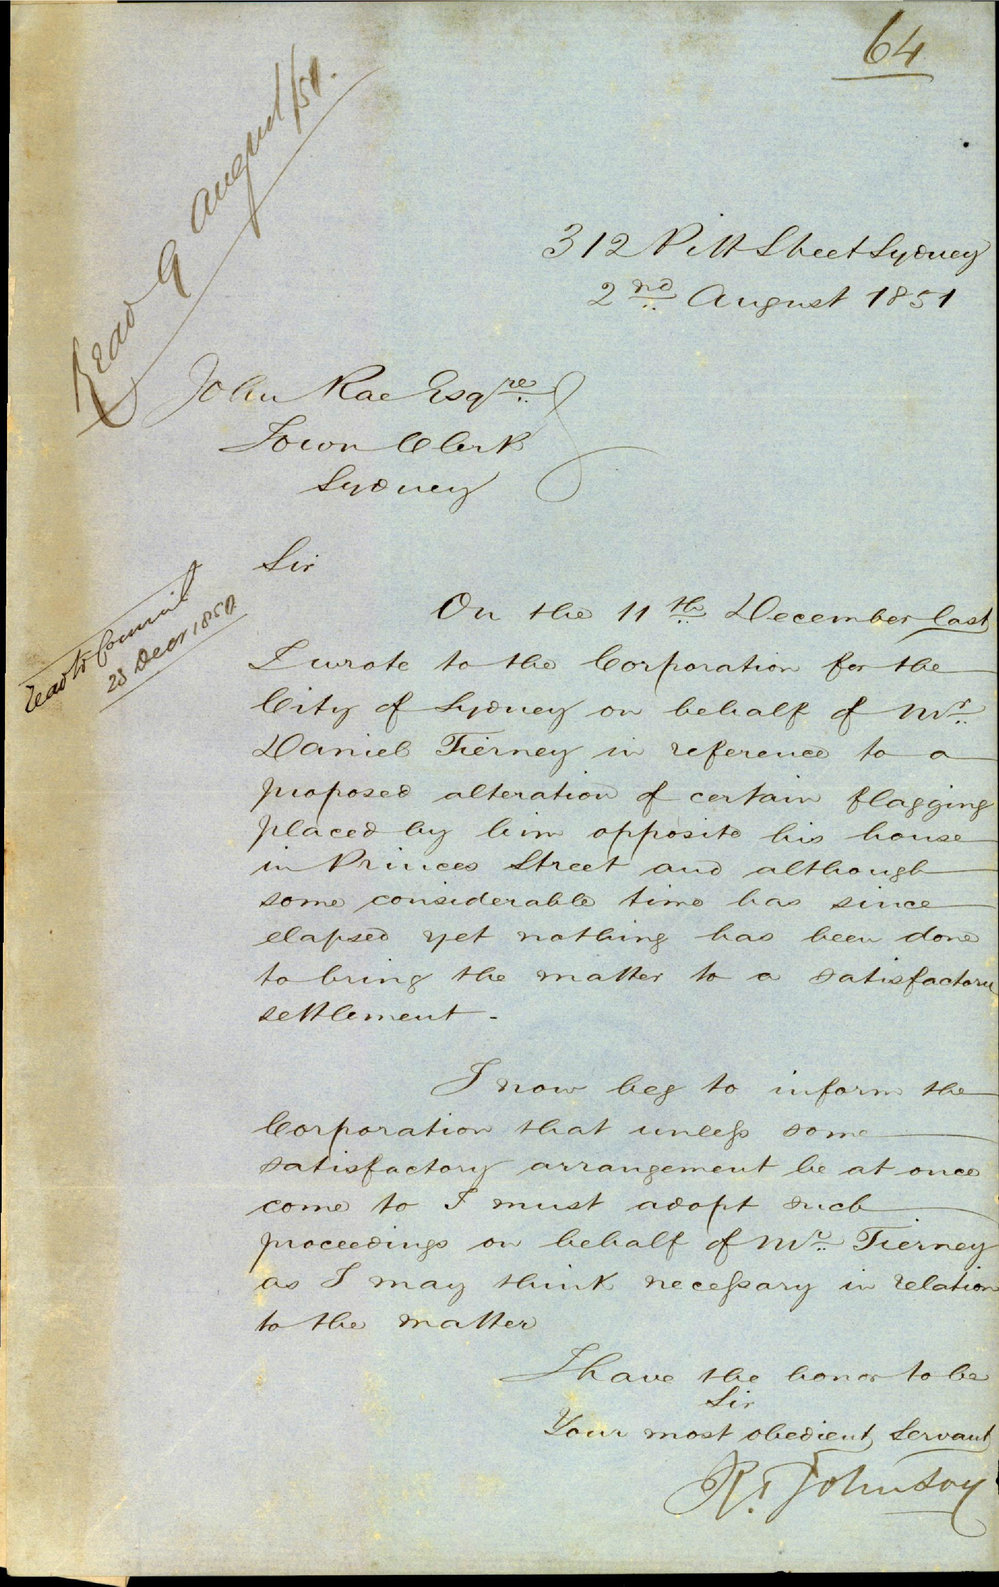 64
Read 9 August/51.
312 Pitt Street Sydney
2nd August 1851
John Rae Esqre
Town Clerk
Sydney
Sir
read to Council
23 Decr 1850
On the 11th December last
I wrote to the Corporation for the
City of Sydney on behalf of Mr
Daniel Tierney in reference to a
proposed alteration of certain flagging
placed by him opposite his house
in Princes Street and although
some considerable time has since
elapsed yet nothing has been done
to bring the matter to a satisfactory
settlement -
I now beg to inform the
Corporation that unless some
satisfactory arrangement be at once
come to I must adopt such
proceedings on behalf of Mr Tierney
as I may think necessary in relation
to the matter
I have the honor to be
Sir
Your most obedient Servant
R. Johnson